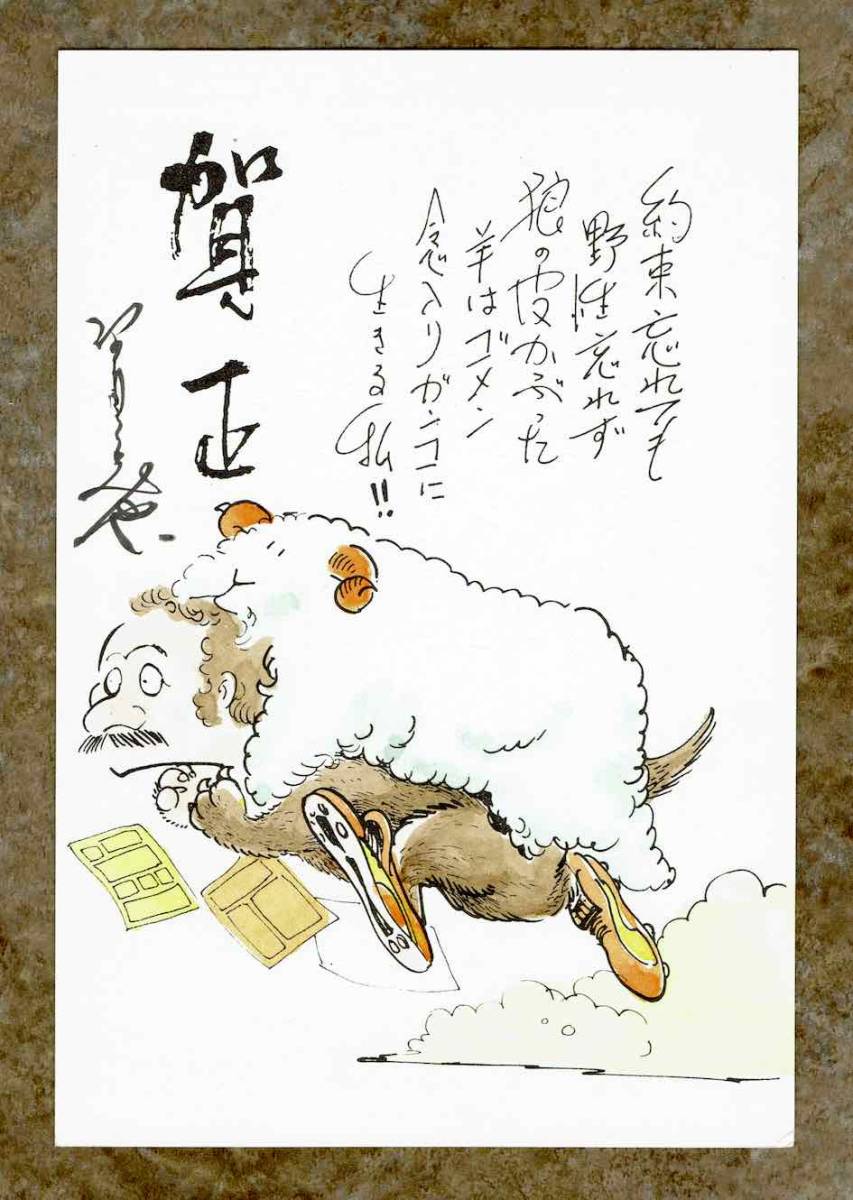 約束忘れても
野性忘れず
狼の皮かぶった
羊はゴメン
念入りガンコに
生きる私!!
賀正